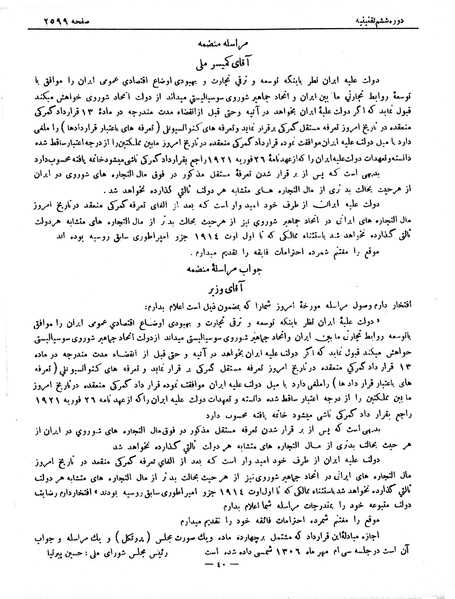 دوره ششم تقنینیه
صفحه ۲۵۹۹
مراسله منضمه
آقای کمیسر ملی
دولت علیه ایران نظر باینکه توسعه و ترقی تجارت و بهبودی اوضاع اقتصادی عمومی ایران را موافق با
توسعهٔ روابط تجارتی ما بین ایران و اتحاد جماهیر شوروی سوسیالیستی میداند از دولت اتحاد شوروی خواهش میکند
قبول نماید که اگر دولت علیهٔ ایران بخواهد در آتیه و حتی قبل از انقضاء مدت مندرجه در مادهٔ ۱۳ قرارداد گمرکی
منعقده در تاریخ امروز تعرفه مستقل گمرکی برقرار نماید و تعرفه های کنوانسیونلی ( تعرفه های باعتبار قراردادها ) را ملغی
دارد با میل دولت علیه ایران موافقت نموده قرارداد گمرکی منعقده در تاریخ امروز مابین مملکتین را از درجه اعتبار ساقط شده
دانسته و تعهدات دولت علیه ایران را که از عهدنامهٔ ۲۶ فوریه ۱۹۲۱ راجع بقرارداد گمرکی ناشی میشود خاتمه یافته محسوب دارد
بدیهی است که پس از بر قرار شدن تعرفهٔ مستقل مذکور در فوق مال التجاره های شوروی در ایران
از هر حیث بحالت بدتر از مال التجاره های متشابه هر دولت ثالثی گذارده نخواهد شد
دولت علیه ایران از طرف خود امید وار است که بعد از الغای تعرفه گمرکی منعقد در تاریخ امروز
مال التجاره های ایرانی در اتحاد جماهیر شوروی نیز از هر حیث بحالت بدتر از مال التجاره های متشابه هر دولت
ثالثی گذارده نخواهد شد باستثناء ممالکی که تا اول اوت ۱۹۱۴ جزو امپراطوری سابق روسیه بوده اند
موقع را مغتنم شمرده احترامات فایقه را تقدیم میدارم .
جواب مراسلهٔ منضمه
آقای وزیر
افتخار دارم وصول مراسله مورخهٔ امروز شما را که بمضمون ذیل است اعلام بدارم :
« دولت علیهٔ ایران نظر باینکه توسعه و ترقی تجارت و بهبودی اوضاع اقتصادی عمومی ایران را موافق
با توسعه روابط تجارتی ما بین ایران و اتحاد جماهیر شوروی سوسیالیستی میداند از دولت اتحاد جماهیر شوروی سوسیالیستی
خواهش میکند قبول نماید که اگر دولت علیه ایران بخواهد در آتیه و حتی قبل از انقضاء مدت مندرجه در ماده
۱۳ قرار داد گمرکی منعقده در تاریخ امروز تعرفه مستقل گمرکی بر قرار نماید و تعرفه های کنوانسیونلی ( تعرفه
های باعتبار قرار داد ها ) را ملغی دارد با میل دولت علیه ایران موافقت نموده قرار داد گمرکی منعقده در تاریخ امروز
ما بین مملکتین را از درجه اعتبار ساقط شده دانسته و تعهدات دولت علیه ایران را که از عهد نامه ۲۶ فوریه ۱۹۲۱
راجع بقرار داد گمرکی ناشی میشود خاتمه یافته محسوب دارد
بدیهی است که پس از بر قرار شدن تعرفه مستقل مذکور در فوق مال التجاره های شوروی در ایران از
هر حیث بحالت بدتری از مال التجاره های متشابه هر دولت ثالثی گذارده نخواهد شد
دولت علیه ایران از طرف خود امید وار است که بعد از الغای تعرفه گمرکی منعقد در تاریخ امروز
مال التجاره های ایرانی در اتحاد جماهیر شوروی نیز از هر حیث بحالت بدتر از مال التجاره های متشابه هر دولت
ثالثی گذارده نخواهد شد باستثناء ممالکی که تا اول اوت ۱۹۱۴ جزو امپراطوری سابق روسیه بودند » افتخار دارم رضایت
دولت متبوعه خود را بمندرجات مراسله شما اعلام بدارم
موقع را مغتنم شمرده احترامات فائقه خود را تقدیم میدارم
اجازه مبادلهٔ این قرارداد که مشتمل بر چهارده ماده و یک صورت مجلس ( پروتکل ) و یک مراسله و جواب
آن است در جلسه سی ام مهر ماه ۱۳۰۶ شمسی داده شده است
رئیس مجلس شورای ملی : حسین پیرنیا
— ۴۰ —